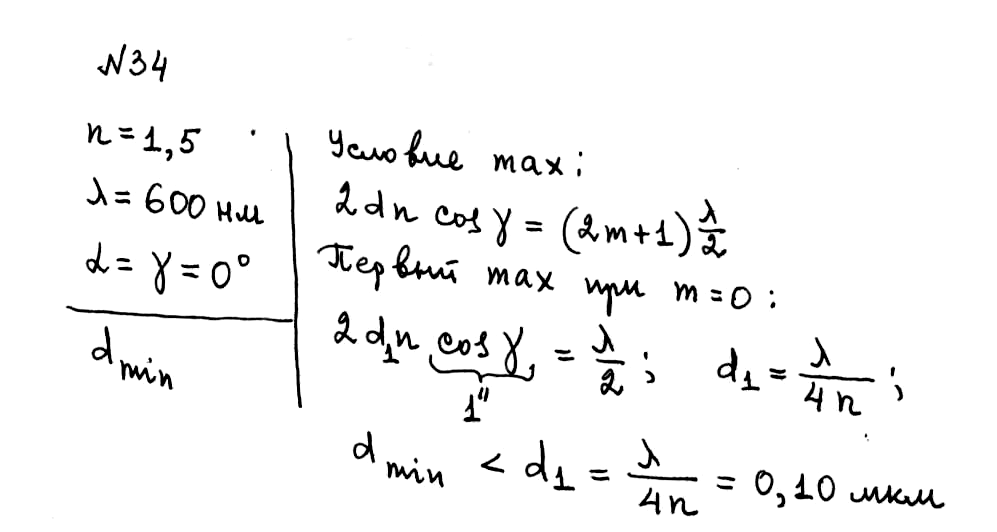 N34
n = 1,5
λ = 600 нм
α = γ = 0°
d min
Условие max:
2dn cos γ = (2m+1) λ/2
Первый max при m = 0 :
2d₁n cos γ = λ/2 ; d₁ = λ/4n ;
1"
d min < d₁ = λ/4n = 0,10 мкм